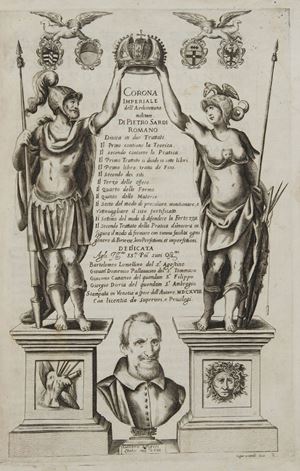 CORONA
IMPERIALE
dell'Architettura
militare
DI PIETRO SARDI
ROMANO
Divisa in due Trattati
Il Primo contiene la Teorica
Il Secondo contiene la Pratica
Il Primo Trattato si divide in sette libri
Il Primo libro tratta de Fini
Il Secondo dei siti
Il Terzo delle offese
Il Quarto delle Forme
Il Quinto delle Materie
Il Sesto del modo di presidiare, munitionare, e
Vettovagliare il sito fortificato
Il Settimo del modo di difendere la Fortezza
Il Secondo Trattato della Pratica dimostra in
figura il modo di formare con somma facilità ogni
genere di Fortezze, loro Perfettioni, et imperfettioni
DEDICATA
Agli
Bartolomeo Lomellino del S. Agostino
Giovani Domenico Pallavicino del S. Tommaso
Giacomo Cattaneo del quondam S. Filippo
Giorgio Doria del quondam S. Ambrogio
Stampata in Venetia a spese dell'Autore. MDCXVIII
Con licentia de Superiori, e Privilegi